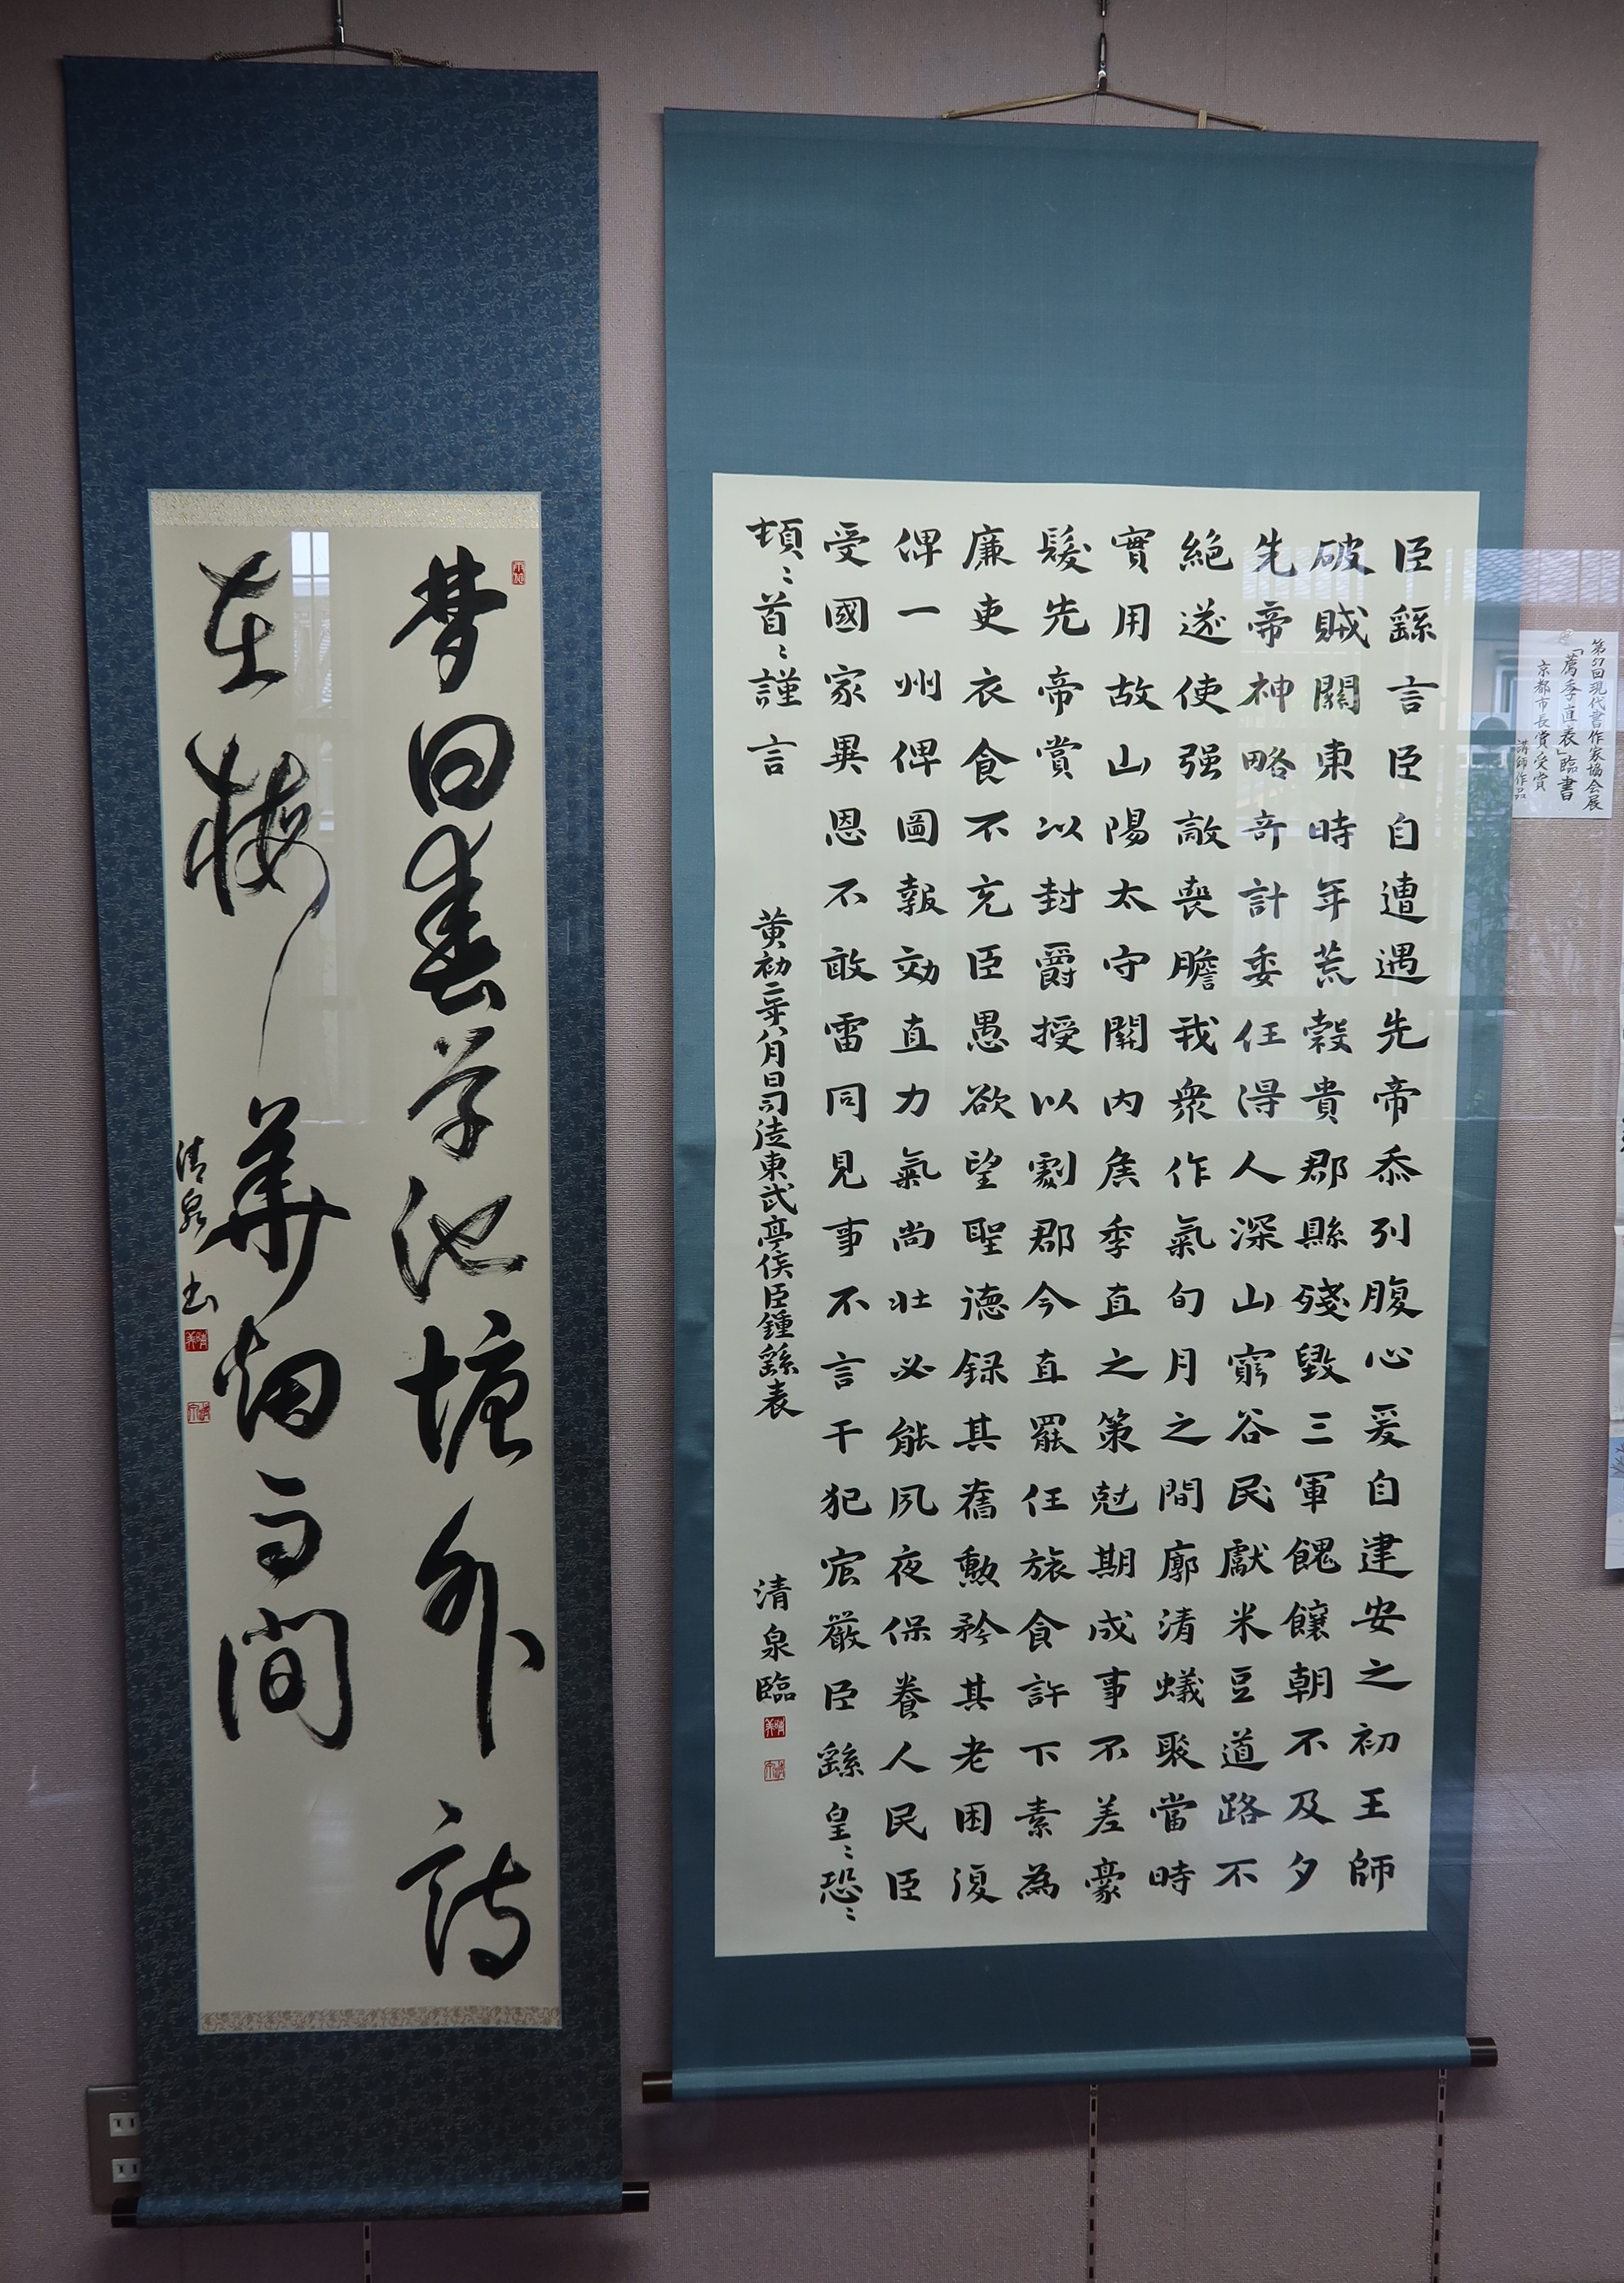 第57回現代書作家協会展
「薦季直表」臨書
京都市長賞受賞
講師作品
臣繇言臣自遭遇先帝忝列腹心爰自建安之初王師
破賊關東時年荒穀貴郡縣殘毀三軍餽饟朝不及夕
先帝神略奇計委任得人深山窮谷民獻米豆道路不
絶遂使强敵喪膽我衆作氣旬月之間廓清蟻聚當時
實用故山陽太守關内矦季直之策尅期成事不差豪
髮先帝賞以封爵授以劇郡今直罷任旅食許下素為
廉吏衣食不充臣愚欲望聖徳録其舊勲矜其老困復
俾一州俾圖報効直力氣尚壮必能夙夜保養人民臣
受國家異恩不敢雷同見事不言干犯宸嚴臣繇皇〻恐〻
頓〻首〻謹言
黄初二年八月日司徒東武亭侯臣鍾繇表
清泉臨
夢回春草池塘外詩
在梅華烟雨間
清泉書